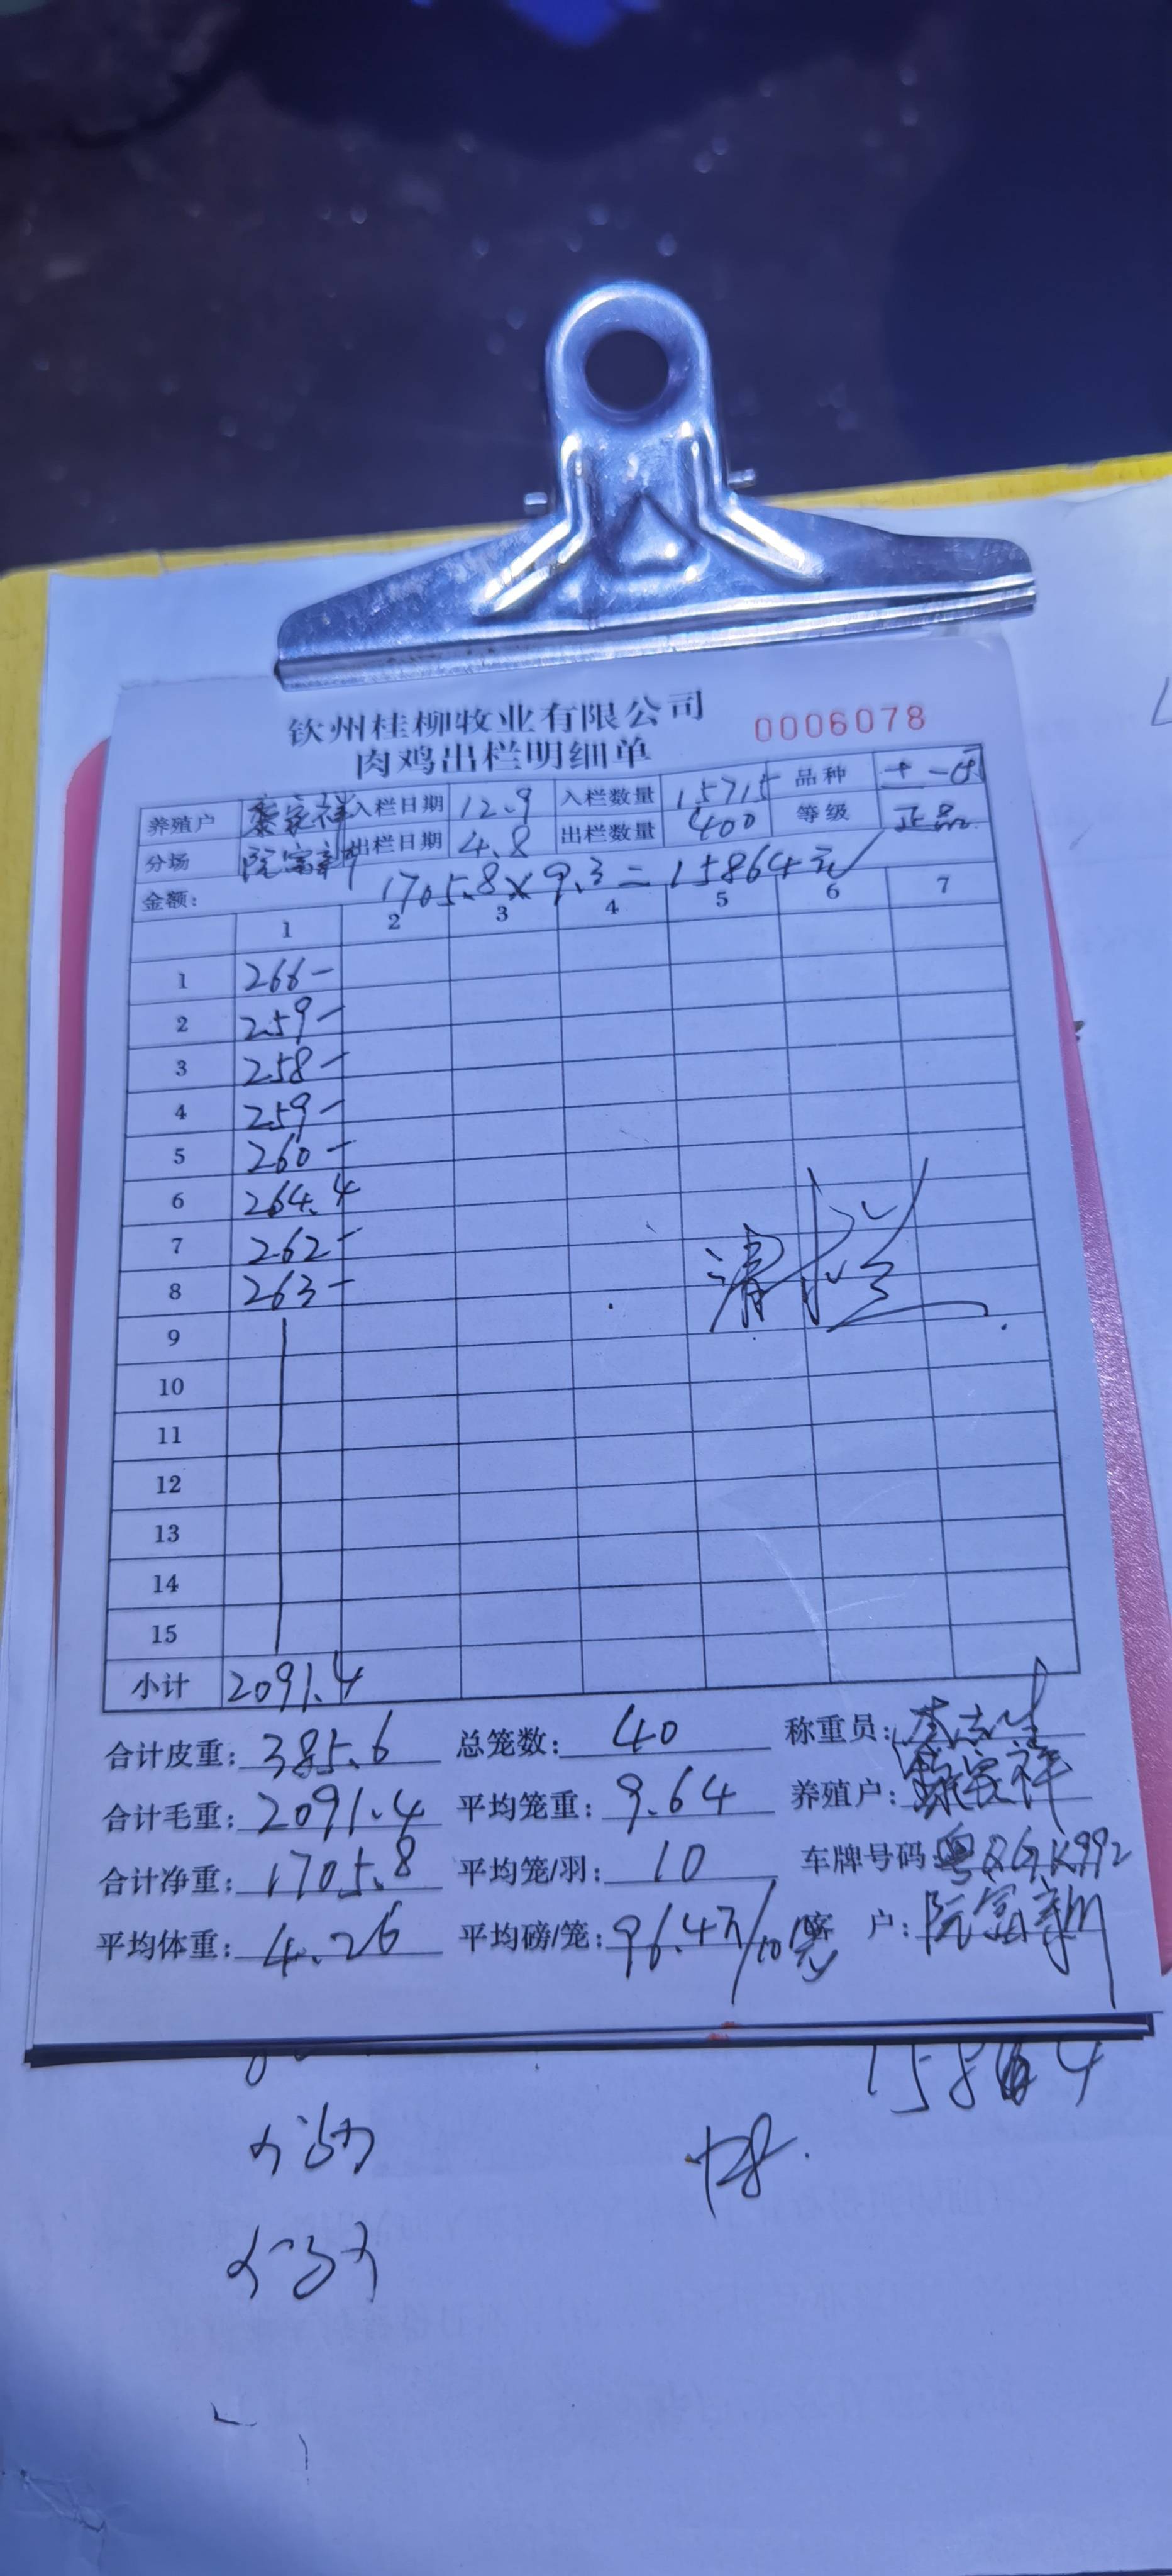 钦州桂柳牧业有限公司
肉鸡出栏明细单 0006078
养殖户 家祥 入栏日期 12.9 入栏数量 15715 品种 土一
分场 阮富新 出栏日期 4.8 出栏数量 400 等级 正品
金额: 1705.8×9.3=15864元
1 2 3 4 5 6 7
1 266-
2 259-
3 258-
4 259-
5 260-
6 264.4
7 262-
8 263-
清栏
9
10
11
12
13
14
15
小计 2091.4
合计皮重: 385.6 总笼数: 40 称重员:
合计毛重: 2091.4 平均笼重: 9.64 养殖户: 家祥
合计净重: 1705.8 平均笼/羽: 10 车牌号码
平均体重: 4.26 平均磅/笼: 96.4 户: 阮富新
15864